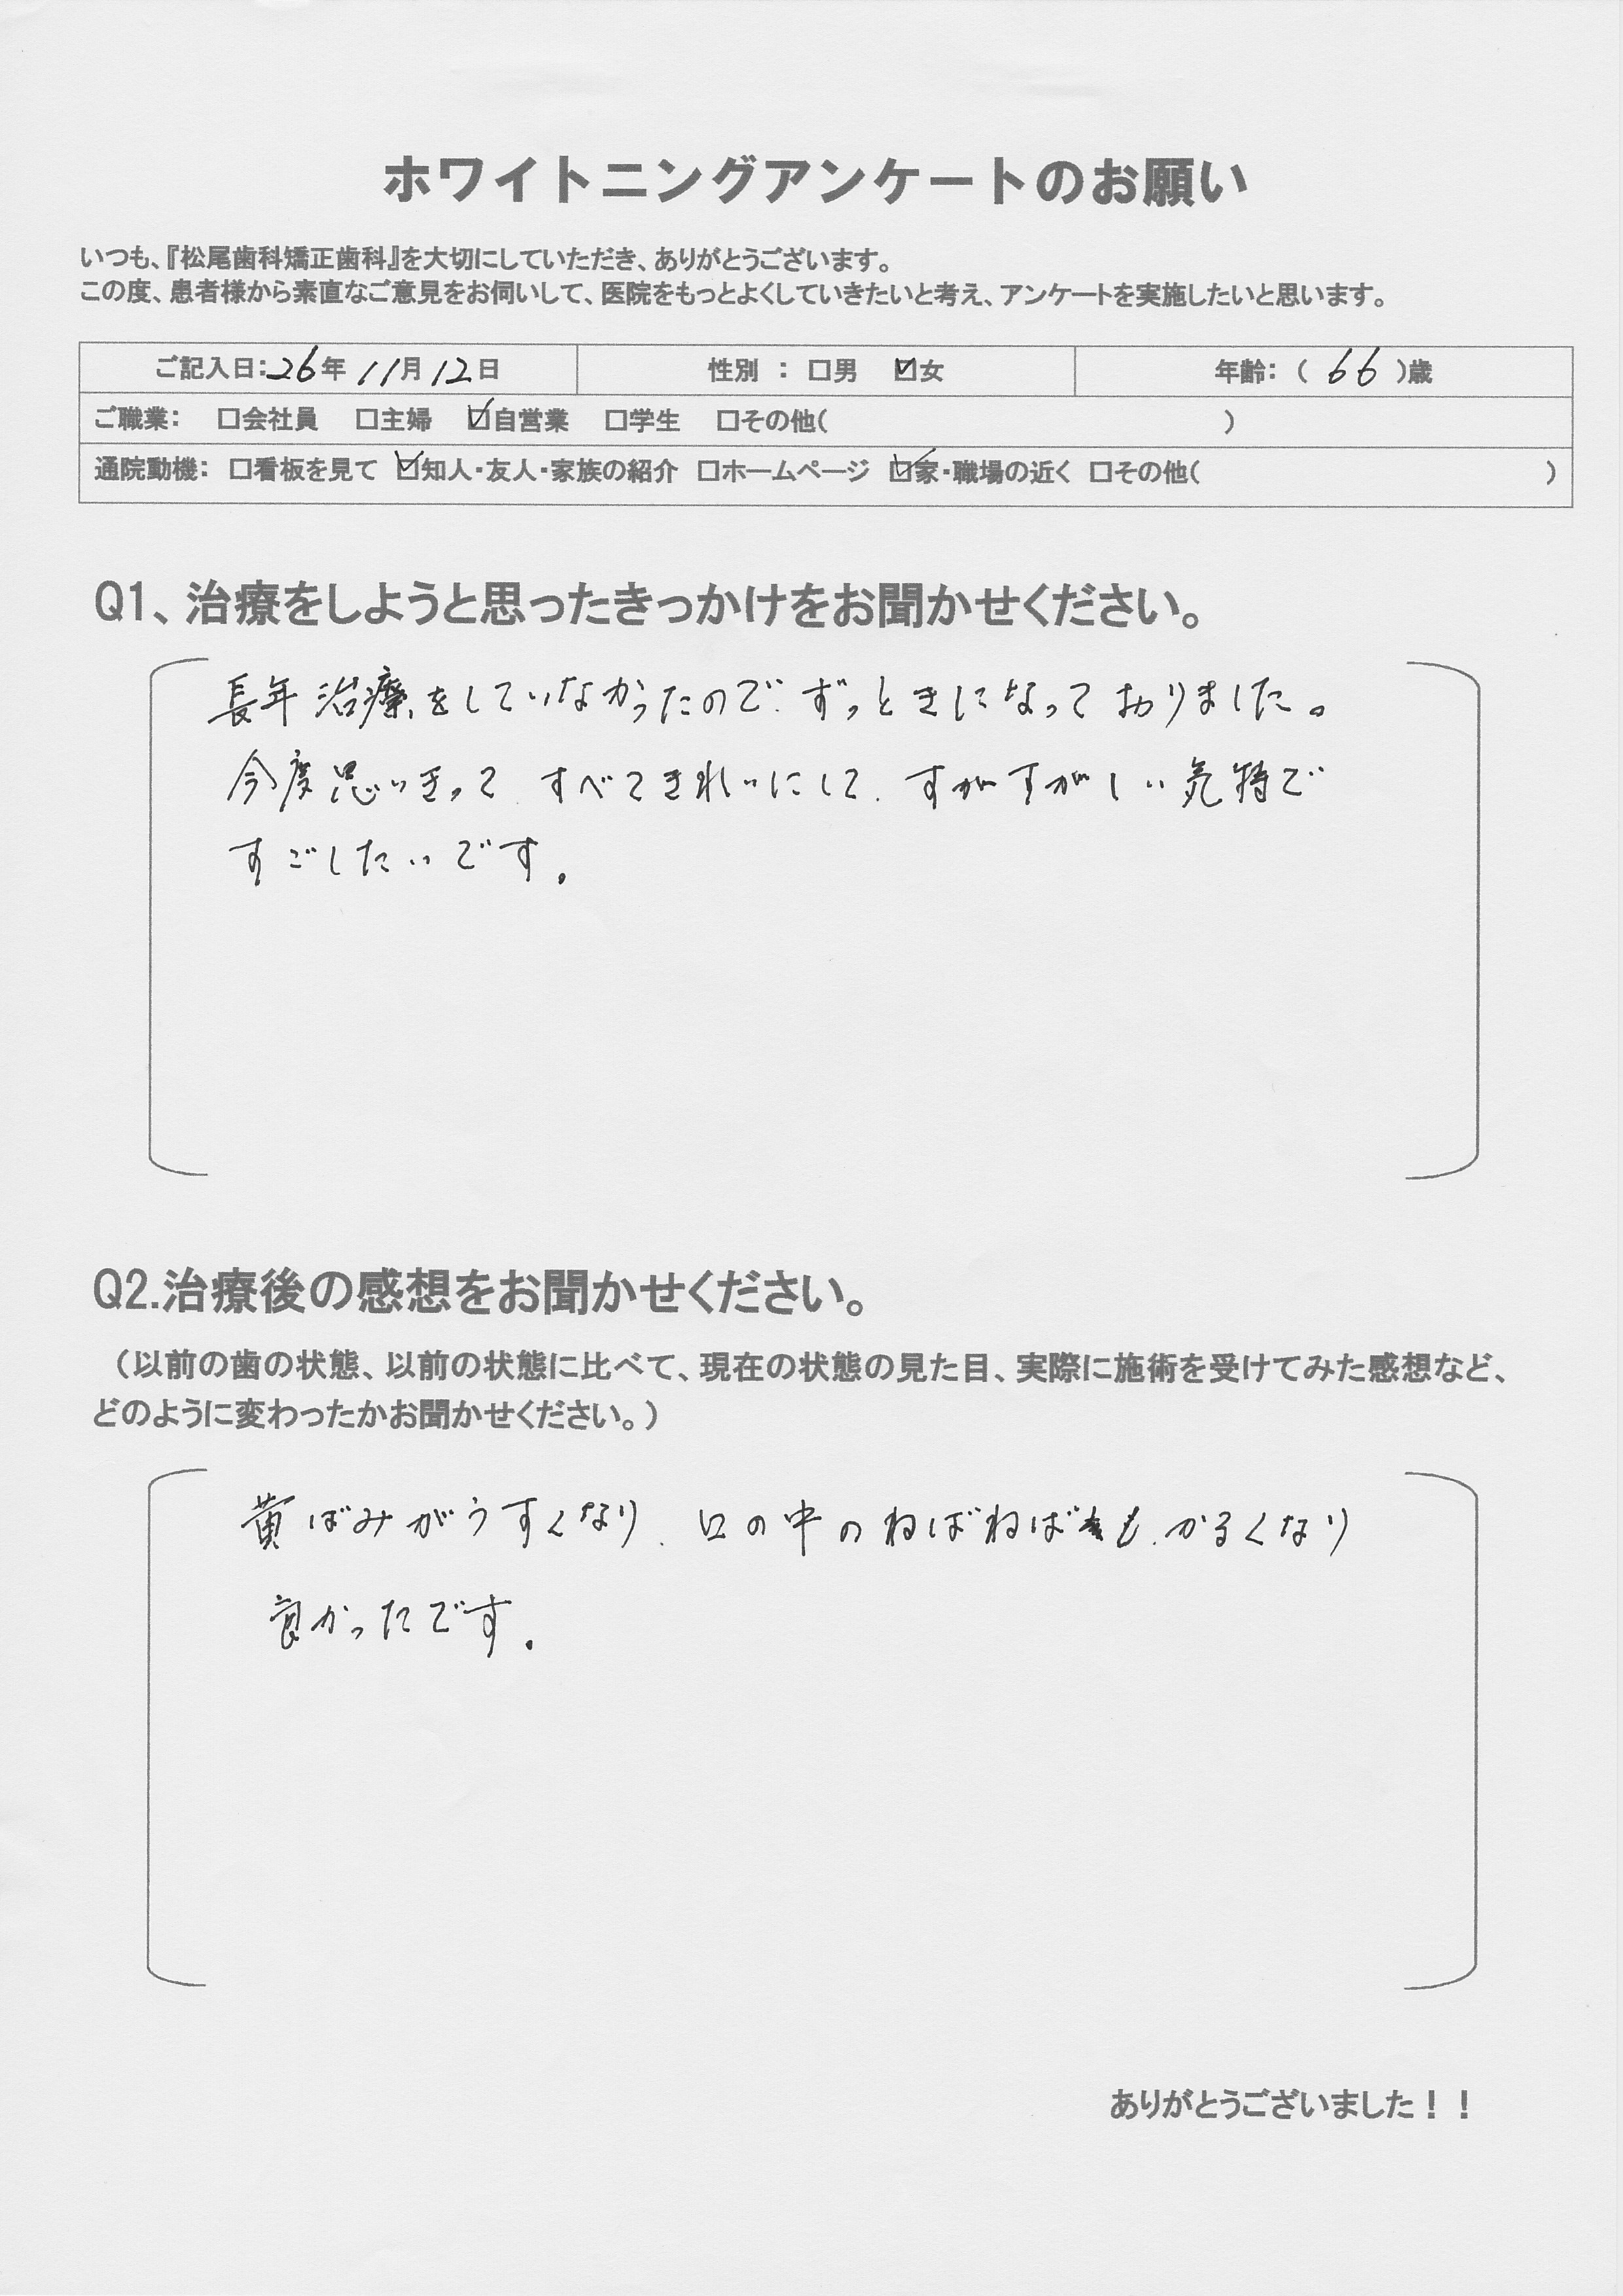 ホワイトニングアンケートのお願い
いつも、『松尾歯科矯正歯科』を大切にしていただき、ありがとうございます。
この度、患者様から素直なご意見をお伺いして、医院をもっとよくしていきたいと考え、アンケートを実施したいと思います。
ご記入日:26年 11月12日 性別 : □男 ☑女 年齢:( 66 )歳
ご職業: □会社員 □主婦 ☑自営業 □学生 □その他( )
通院動機: □看板を見て ☑知人・友人・家族の紹介 □ホームページ ☑家・職場の近く □その他( )
Q1、治療をしようと思ったきっかけをお聞かせください。
長年治療をしていなかったので、ずっときになっておりました。
今度思いきって、すべてきれいにして、すがすがしい気持で
すごしたいです。
Q2.治療後の感想をお聞かせください。
（以前の歯の状態、以前の状態に比べて、現在の状態の見た目、実際に施術を受けてみた感想など、
どのように変わったかお聞かせください。）
黄ばみがうすくなり、口の中のねばねばも、かるくなり
良かったです。
ありがとうございました！！